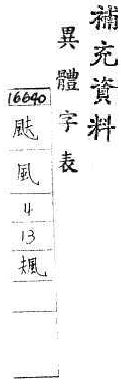 補充資料
異體字表
16640
颫
風
4
13